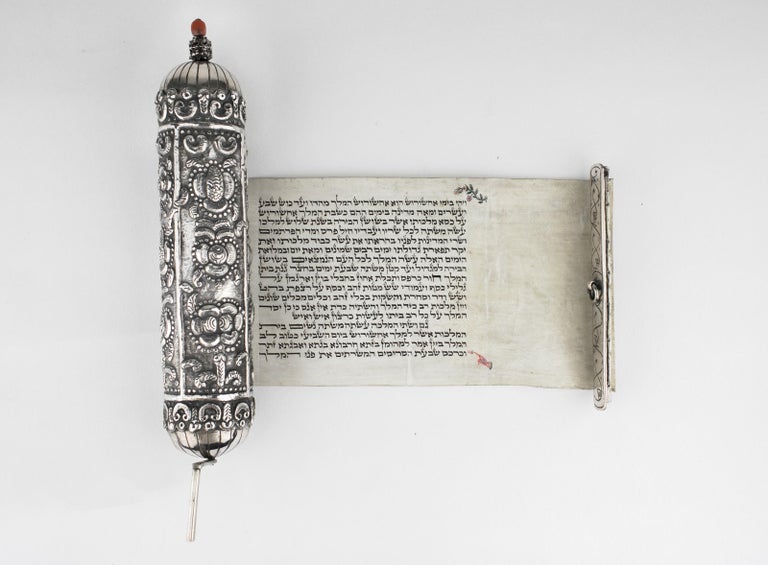 ויהי בימי אחשורוש הוא אחשורוש המלך מהדו ועד כוש שבע
ועשרים ומאה מדינה בימים ההם כשבת המלך אחשורוש
על כסא מלכותו אשר בשושן הבירה בשנת שלוש למלכו
עשה משתה לכל שריו ועבדיו חיל פרס ומדי הפרתמים
ושרי המדינות לפניו בהראתו את עשר כבוד מלכותו ואת
יקר תפארת גדולתו ימים רבים שמונים ומאת יום ובמלואת
הימים האלה עשה המלך לכל העם הנמצאים בשושן
הבירה למגדול ועד קטן משתה שבעת ימים בחצר גנת ביתן
המלך חור כרפס ותכלת אחוז בחבלי בוץ וארגמן על
גלילי כסף ועמודי שש מטות זהב וכסף על רצפת בהט
ושש ודר וסחרת והשקות בכלי זהב וכלים מכלים שונים
ויין מלכות רב כיד המלך והשתיה כדת אין אנס כי כן יסד
המלך על כל רב ביתו לעשות כרצון איש ואיש
גם ושתי המלכה עשתה משתה נשים בית
המלכות אשר למלך אחשורוש ביום השביעי כטוב לב
המלך ביין אמר למהומן בזתא חרבונא בגתא ואבגתא זתר
וכרכס שבעת הסריסים המשרתים את פני המלך